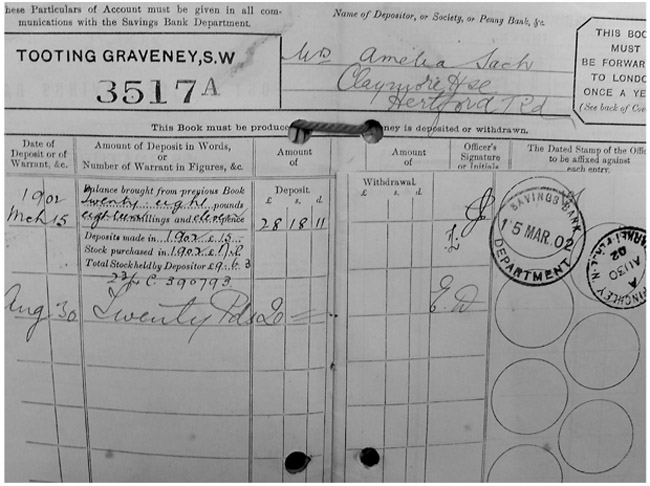 hese Particulars of Account must be given in all com-
munications with the Savings Bank Department.
Name of Depositor, or Society, or Penny Bank, &c.
TOOTING GRAVENEY, S.W
3517A
Mrs Amelia Sach
Claymore Hse
Hertford Rd
THIS BOO
MUST
BE FORWAR
TO LONDO
ONCE A YE
(See back of Cove
This Book must be produce
ney is deposited or withdrawn.
Date of
Deposit or of
Warrant, &c.
Amount of Deposit in Words,
or
Number of Warrant in Figures, &c.
Amount
of
Deposit
£ s. d.
Amount
of
Withdrawal
£ s. d.
Officer's
Signature
or Initials
The Dated Stamp of the Offic
to be affixed against
each entry.
1902
Mch 15
Balance brought from previous Book
Twenty eight pounds
eighteen shillings and eleven pence
28 18 11
Deposits made in 1902 £ 15 -
Stock purchased in 1902 £
Total Stock held by Depositor £ 9. 6. 3
C. 390793
Aug 30 Twenty Pds 20 =
E. D
SAVINGS BANK
15 MAR. 02
DEPARTMENT
A
AU 30
02
FINCHLEY N.